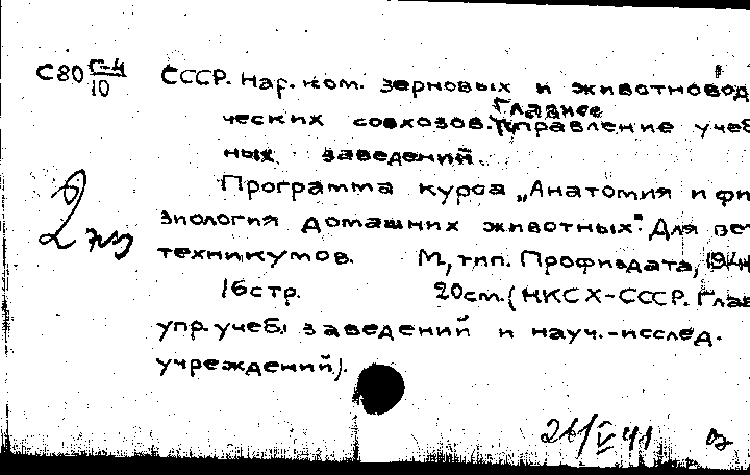 С80 Г-4/10 СССР. Нар. ком. зерновых и животновод
Главное
ческих совхозов. Управление учеб
ных заведений.
Программа курса „Анатомия и фи
зиология домашних животных". Для вет
2 экз
техникумов. М, тип. Профиздата,
16 стр. 20см. (НКСХ-СССР. Глав
упр. учеб. заведений и науч.-исслед.
учреждений).
26/V 41